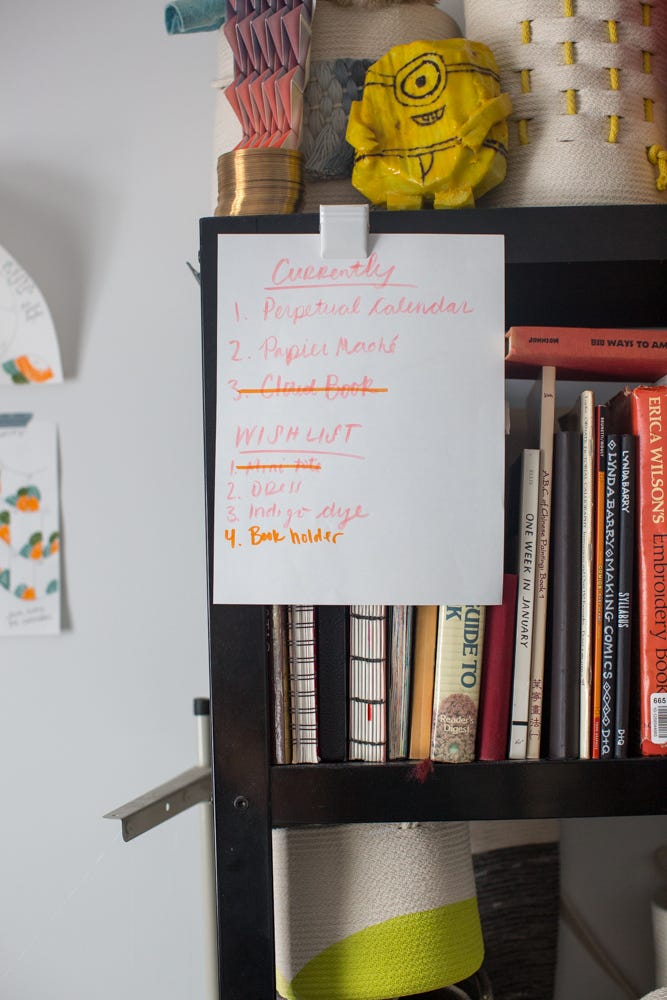 Currently
1. Perpetual Calendar
2. Papier Maché
3. Cloud Book
WISHLIST
1. Mini tote
2. DRESS
3. Indigo dye
4. Book holder
JOHNSON BIB WAYS TO AM
GUIDE TO
Reader's Digest
ELLIS ONE WEEK IN JANUARY
A.B.C. of Chinese Painting Book 1
LYNDA BARRY MAKING COMICS D+Q
LYNDA BARRY SYLLABUS D+Q
ERICA WILSON'S Embroidery Book
665